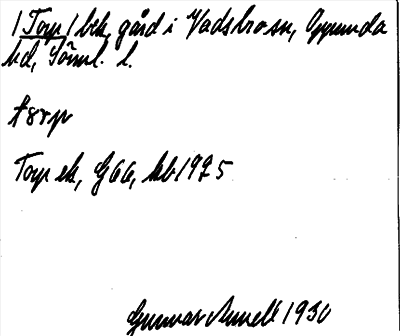 /Torp/ bek. gård i Vadsbro sn, Oppunda
hd, Söml. l.
Torp ek, G66, kb 1925
Gunvar Arnell 1930